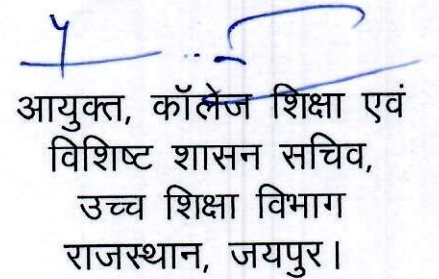 आयुक्त, कॉलेज शिक्षा एवं
विशिष्ट शासन सचिव,
उच्च शिक्षा विभाग
राजस्थान, जयपुर।